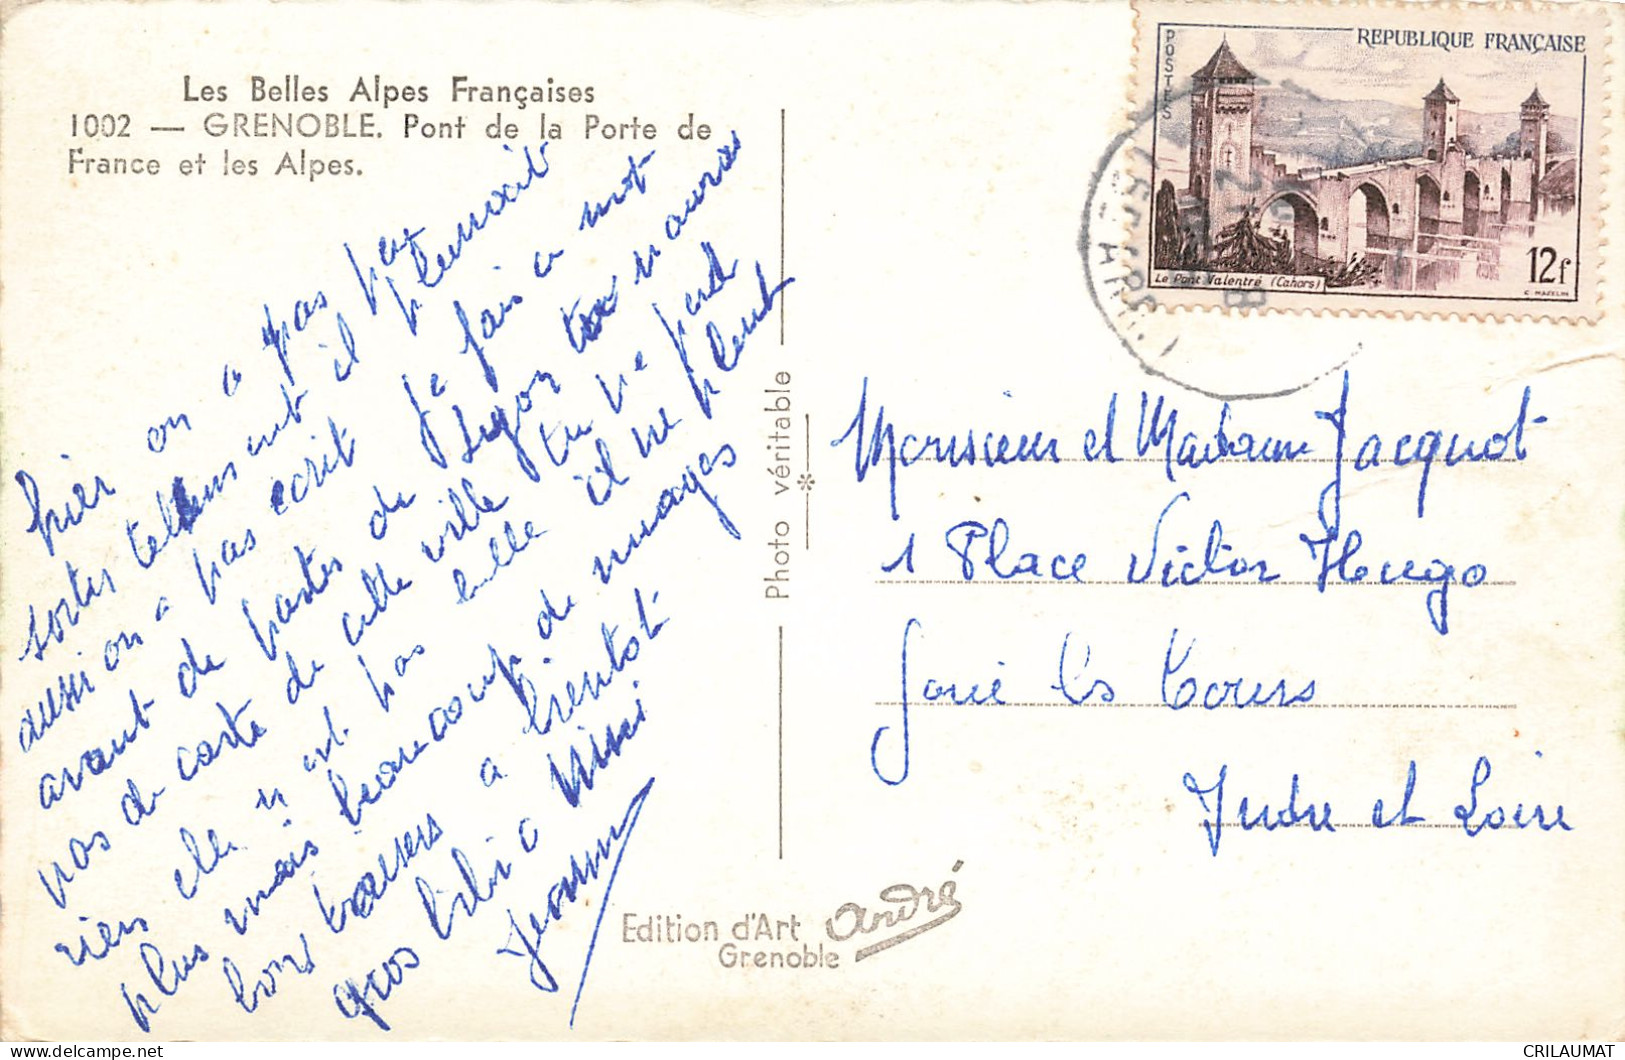 Les Belles Alpes Françaises
1002 — GRENOBLE. Pont de la Porte de
France et les Alpes.
hier on a pas pu
sortir tellement il pleuvait
aussi on a pas ecrit je fais un mot
avant de partir de Lyon tu n'auras
pas de carte de cette ville tu ne perd
rien elle n'est pas belle il ne pleut
plus mais beaucoup de nuages
bons baisers a bientot
gros bibi a Mimi
Jeanne
Photo véritable
Edition d'Art André
Grenoble
POSTES
REPUBLIQUE FRANÇAISE
Le Pont Valentré (Cahors)
12f
C. MAZELIN
Monsieur et Madame Jacquot
1 Place Victor Hugo
Joué les Tours
Indre et Loire
CRILAUMAT